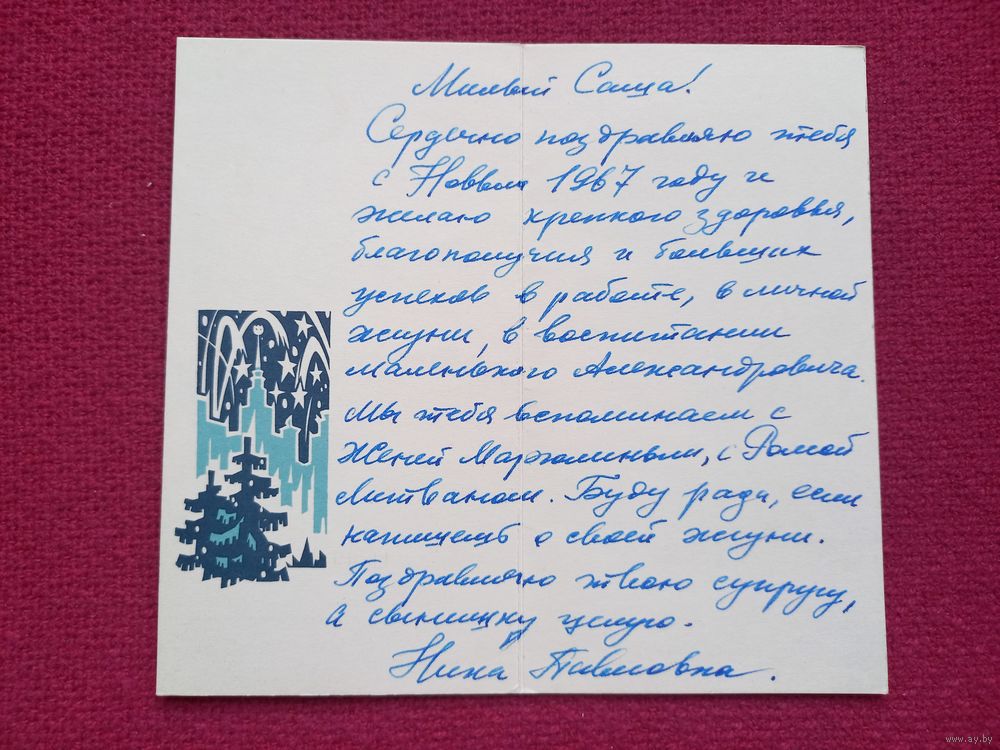 Милый Саша!
Сердечно поздравляю тебя
с Новым 1967 году и
желаю крепкого здоровья,
благополучия и больших
успехов в работе, в личной
жизни, в воспитании
маленького Александровича.
Мы тебя вспоминаем с
Женей Марголиным, с Ромой
Литваком. Буду рада, если
напишешь о своей жизни.
Поздравляю твою супругу,
а сынишку целую.
Нина Павловна.
www.ay.by